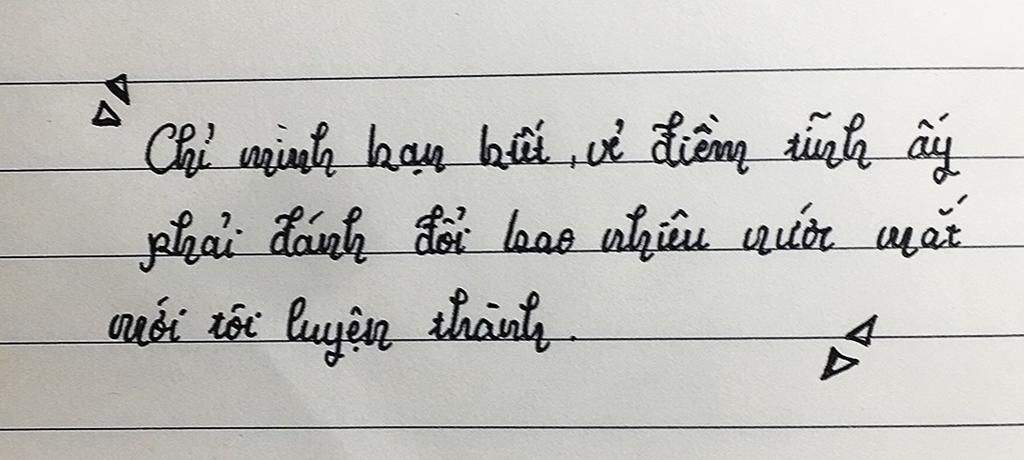 Chỉ mình bạn biết, vẻ điềm tĩnh ấy
phải đánh đổi bao nhiêu nước mắt
mới tôi luyện thành.